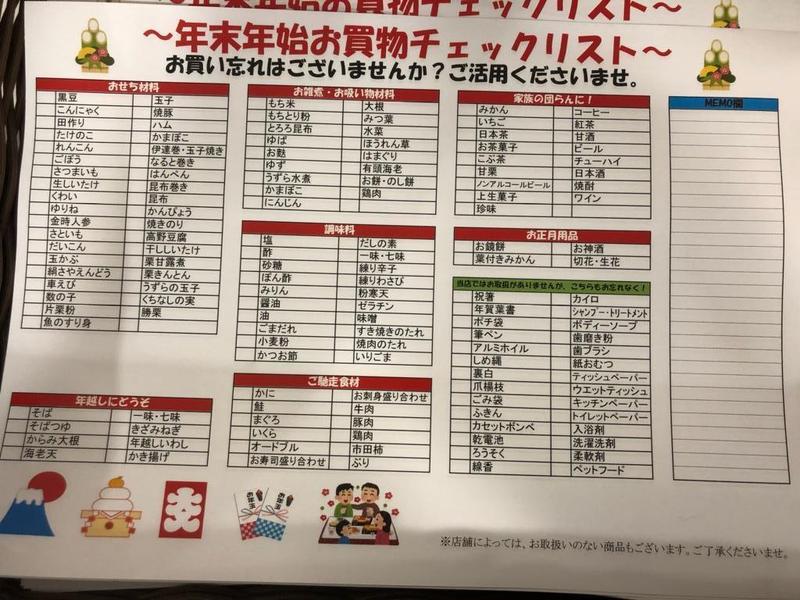 年末年始お買物チェックリスト
～年末年始お買物チェックリスト～
お買い忘れはございませんか？ご活用くださいませ。
おせち材料
黒豆 玉子
こんにゃく 焼豚
田作り ハム
たけのこ かまぼこ
れんこん 伊達巻・玉子焼き
ごぼう なると巻き
さつまいも はんぺん
生しいたけ 昆布巻き
くわい 昆布
ゆりね かんぴょう
金時人参 焼きのり
さといも 高野豆腐
だいこん 干ししいたけ
玉かぶ 栗甘露煮
絹さやえんどう 栗きんとん
車えび うずらの玉子
数の子 くちなしの実
片栗粉 勝栗
魚のすり身
年越しにどうぞ
そば 一味・七味
そばつゆ きざみねぎ
からみ大根 年越しいわし
海老天 かき揚げ
お雑煮・お吸い物材料
もち米 大根
もちとり粉 みつ葉
とろろ昆布 水菜
ゆば ほうれん草
お麩 はまぐり
ゆず 有頭海老
うずら水煮 お餅・のし餅
かまぼこ 鶏肉
にんじん
調味料
塩 だしの素
酢 一味・七味
砂糖 練り辛子
ぽん酢 練りわさび
みりん 粉寒天
醤油 ゼラチン
油 味噌
ごまだれ すき焼きのたれ
小麦粉 焼肉のたれ
かつお節 いりごま
ご馳走食材
かに お刺身盛り合わせ
鮭 牛肉
まぐろ 豚肉
いくら 鶏肉
オードブル 市田柿
お寿司盛り合わせ ぶり
家族の団らんに！
みかん コーヒー
いちご 紅茶
日本茶 甘酒
お茶菓子 ビール
こぶ茶 チューハイ
甘栗 日本酒
ノンアルコールビール 焼酎
上生菓子 ワイン
珍味
お正月用品
お鏡餅 お神酒
葉付きみかん 切花・生花
当店ではお取扱がありませんが、こちらもお忘れなく！
祝箸 カイロ
年賀葉書 シャンプー・トリートメント
ポチ袋 ボディーソープ
筆ペン 歯磨き粉
アルミホイル 歯ブラシ
しめ縄 紙おむつ
裏白 ティッシュペーパー
爪楊枝 ウエットティッシュ
ごみ袋 キッチンペーパー
ふきん トイレットペーパー
カセットボンベ 入浴剤
乾電池 洗濯洗剤
ろうそく 柔軟剤
線香 ペットフード
MEMO欄
お年玉
お年玉
※店舗によっては、お取扱いのない商品もございます。ご了承くださいませ。